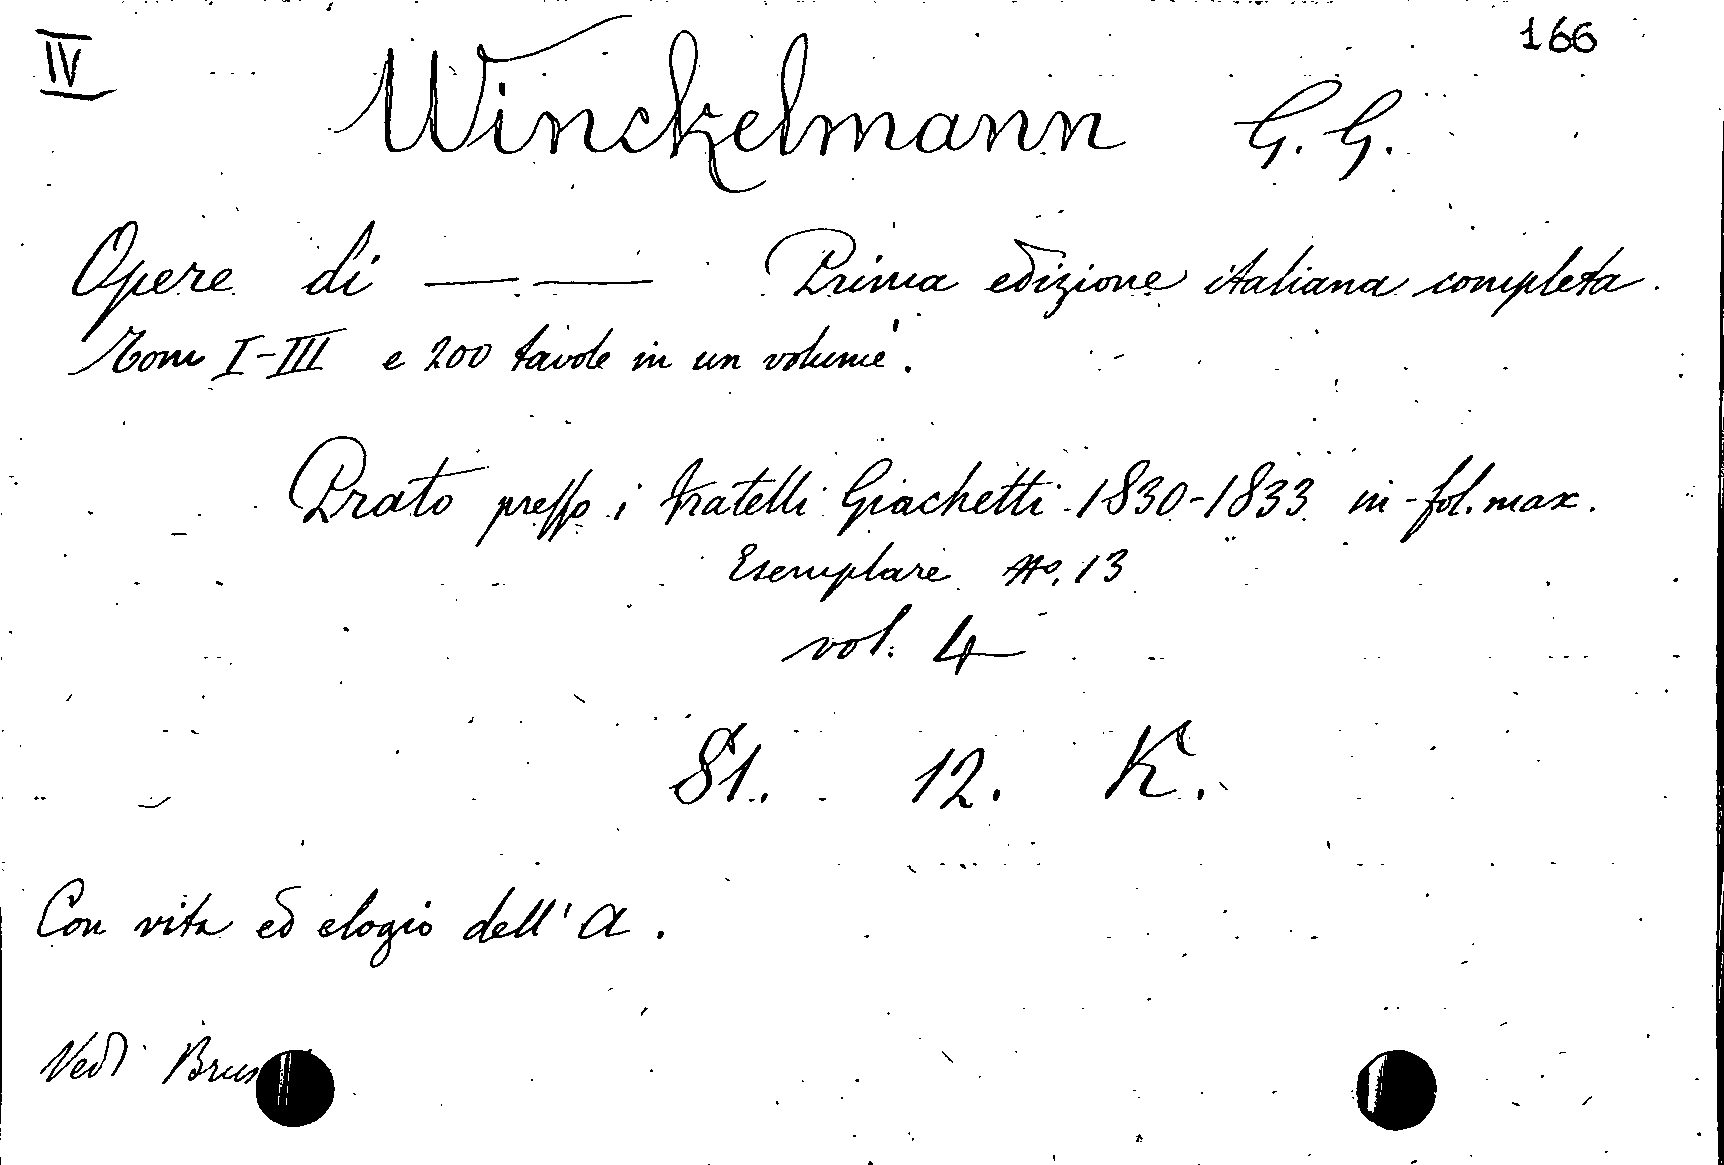 IV
166
Winckelmann G. G.
Opere di — — Prima edizione italiana completa.
Tomi I-III e 200 tavole in un volume.
Prato presso i fratelli Giachetti 1830-1833 in-fol. max.
Esemplare No. 13
vol. 4
St. 12. K.
Con vita ed elogio dell' A.
Vedi